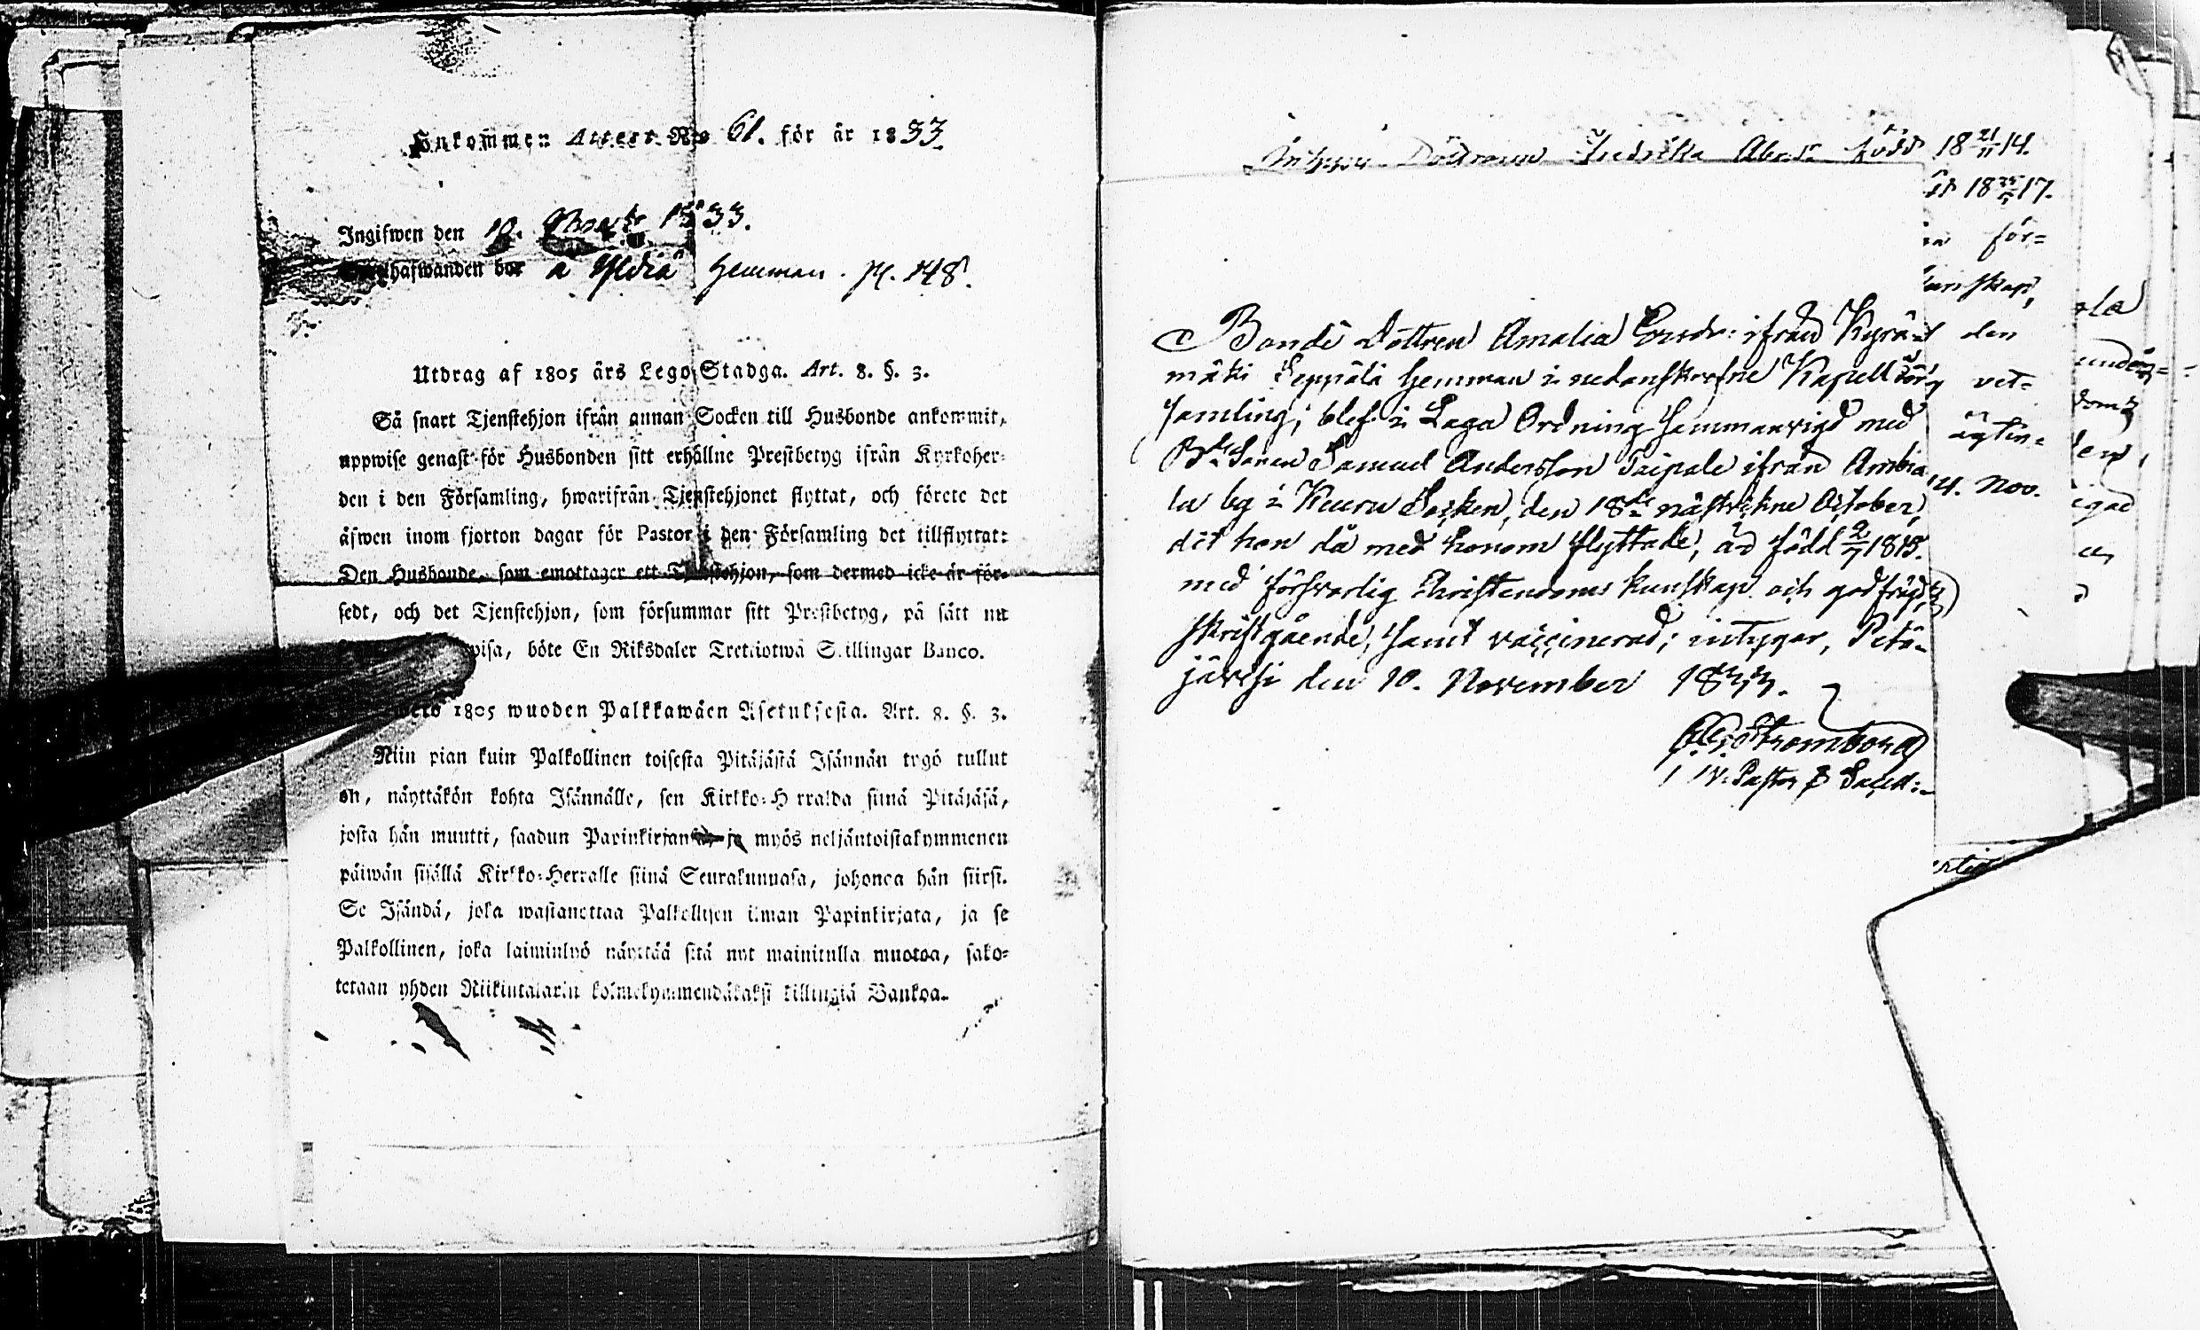 Inkommen Attest No 61. för år 1833.
Ingifwen den 10. 1833.
hafwanden bor å Yldiä Hemman. p. 148.
Utdrag af 1805 års Lego Stadga. Art. 8. §. 3.
Så snart Tjenstehjon ifrån annan Socken till Husbonde ankommit,
uppwise genast för Husbonden sitt erhållne Prestbetyg ifrån Kyrkoher-
den i den Församling, hwarifrån Tjenstehjonet flyttat, och förete det
äfwen inom fjorton dagar för Pastor i den Församling det tillflyttat:
Den Husbonde, som emottager ett Tjenstehjon, som dermed icke är för-
sedt, och det Tjenstehjon, som försummar sitt Prestbetyg, på sätt nu
wisa, böte En Riksdaler Trettiotwå Skillingar Banco.
1805 wuoden Palkkawäen Asetuksesta. Art. 8. §. 3.
Niin pian kuin Palkollinen toisesta Pitäjästä Isännän tygö tullut
on, näyttäkön kohta Isännälle, sen Kirkko-Herralda siinä Pitäjäsä,
josta hän muutti, saadun Papinkirjan ja myös neljäntoistakymmenen
päiwän sisällä Kirkko-Herralle siinä Seurakunnasa, johonga hän siirsi.
Se Isändä, joka wastanottaa Palkollisen ilman Papinkirjata, ja se
Palkollinen, joka laiminlyö näyttää sitä nyt mainitulla muotoa, sako-
tetaan yhden Riikintalarin kolmekymmendäkaksi killingiä Bankoa.
Dottren Fredrika Abr.dr. född 18 21/11 14.
18 25/5 17.
för=
unskap,
den
vet=
ägten=
4. Nov.
Bonde Dottren Amalia Ersdr: ifrån Kyrö-
mäki Seppälä Hemman i nedanskrefne Kapell för
samling; blef i Laga Ordning sammanvigd med
Bde Sonen Samuel Andersson Taipale ifrån Ambia
la by i Keuru Socken, den 18de nästvikne October,
dit hon då med honom flyttade; är född 2/7 1815.
med försvarlig Christendoms kunskap och god frägd,
skriftgående, samt vaccinerad; intygar, Petä-
jäveshi den 10. November 1833.
Strömborg
v. Pastor & Sacell:
ola
den,